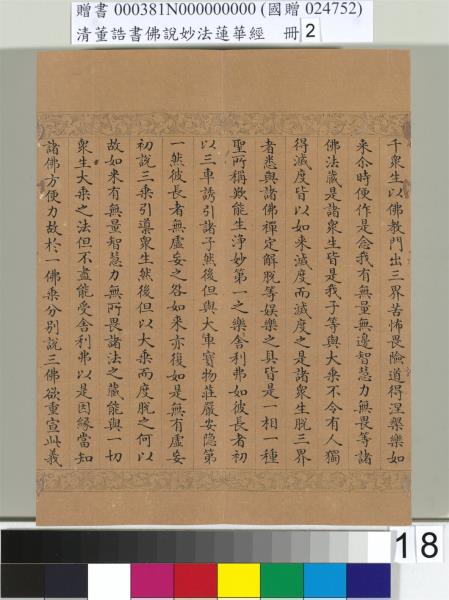 贈書 000381N000000000 (國贈 024752)
清董誥書佛說妙法蓮華經 冊 2
千眾生以佛教門出三界苦怖畏險道得涅槃樂如
來尒時便作是念我有無量無邊智慧力無畏等諸
佛法藏是諸眾生皆是我子等與大乘不令有人獨
得滅度皆以如來滅度而滅度之是諸眾生脫三界
者悉與諸佛禪定解脫等娛樂之具皆是一相一種
聖所稱歎能生淨妙第一之樂舍利弗如彼長者初
以三車誘引諸子然後但與大車寶物莊嚴安隱第
一然彼長者無虛妄之咎如來亦復如是無有虛妄
初說三乘引導眾生然後但以大乘而度脫之何以
故如來有無量智慧力無所畏諸法之藏能與一切
眾生大乘之法但不盡能受舍利弗以是因緣當知
諸佛方便力故於一佛乘分別說三佛欲重宣此義
18